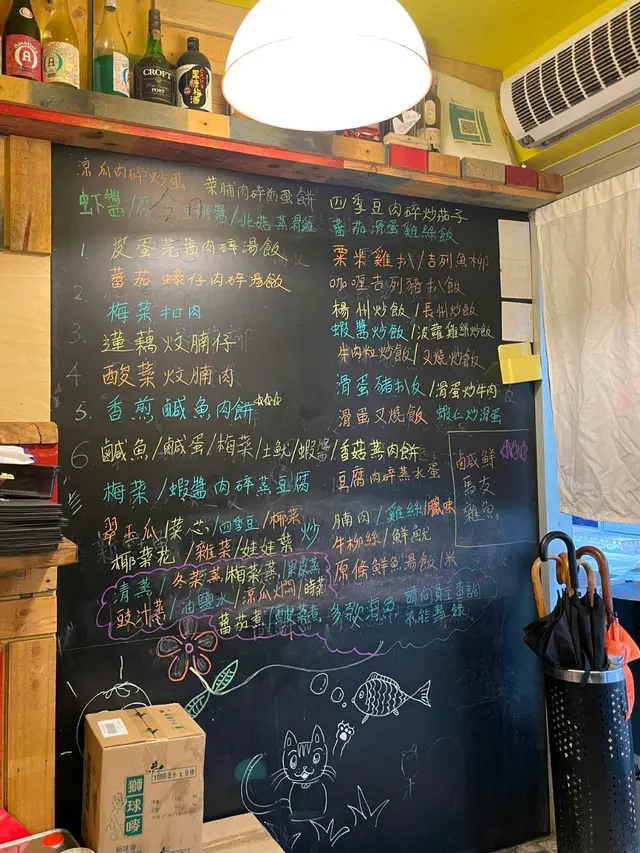 CROFT
PORT
涼瓜肉碎炒蛋
菜脯肉碎煎蛋餅
虾醬/
/北菇蒸雞
1. 皮蛋芫茜肉碎湯飯
2. 蕃茄蠔仔肉碎湯飯
梅菜扣肉
3. 蓮藕炆腩仔
4. 酸菜炆腩肉
5. 香煎鹹魚肉餅
6 鹹魚/鹹蛋/梅菜/土魷/蝦醬/香菇蒸肉餅
梅菜/蝦醬肉碎蒸豆腐
翠玉瓜/菜芯/四季豆/椰菜 炒
椰菜花/雞菜/娃娃菜
清蒸/冬菜蒸/梅菜蒸/果皮蒸
豉汁蒸/油鹽水/涼瓜炆/時菜
蕃茄煮/酸菜煮 多款海魚
四季豆肉碎炒茄子
蕃茄滑蛋雞絲飯
粟米雞扒/吉列魚柳
咖喱吉列豬扒飯
楊州炒飯/長州炒飯
蝦醬炒飯/菠蘿雞絲炒飯
牛肉粒炒飯/叉燒炒飯
滑蛋豬扒反/滑蛋炒牛肉
滑蛋叉燒飯 蝦仁炒滑蛋
豆腐肉碎蒸水蛋
腩肉/雞絲/臘味
牛柳絲/鮮魷
原條鮮魚湯飯/米
鹹鮮
馬友
雞魚
1000毫升
獅球
嘜